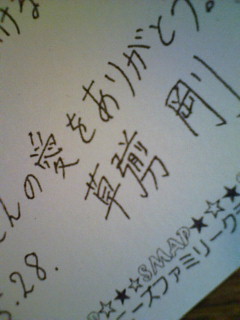 けな
んの愛をありがとう。
草彅 剛
.28.
☆★☆SMAP★☆★
ーズファミリーク